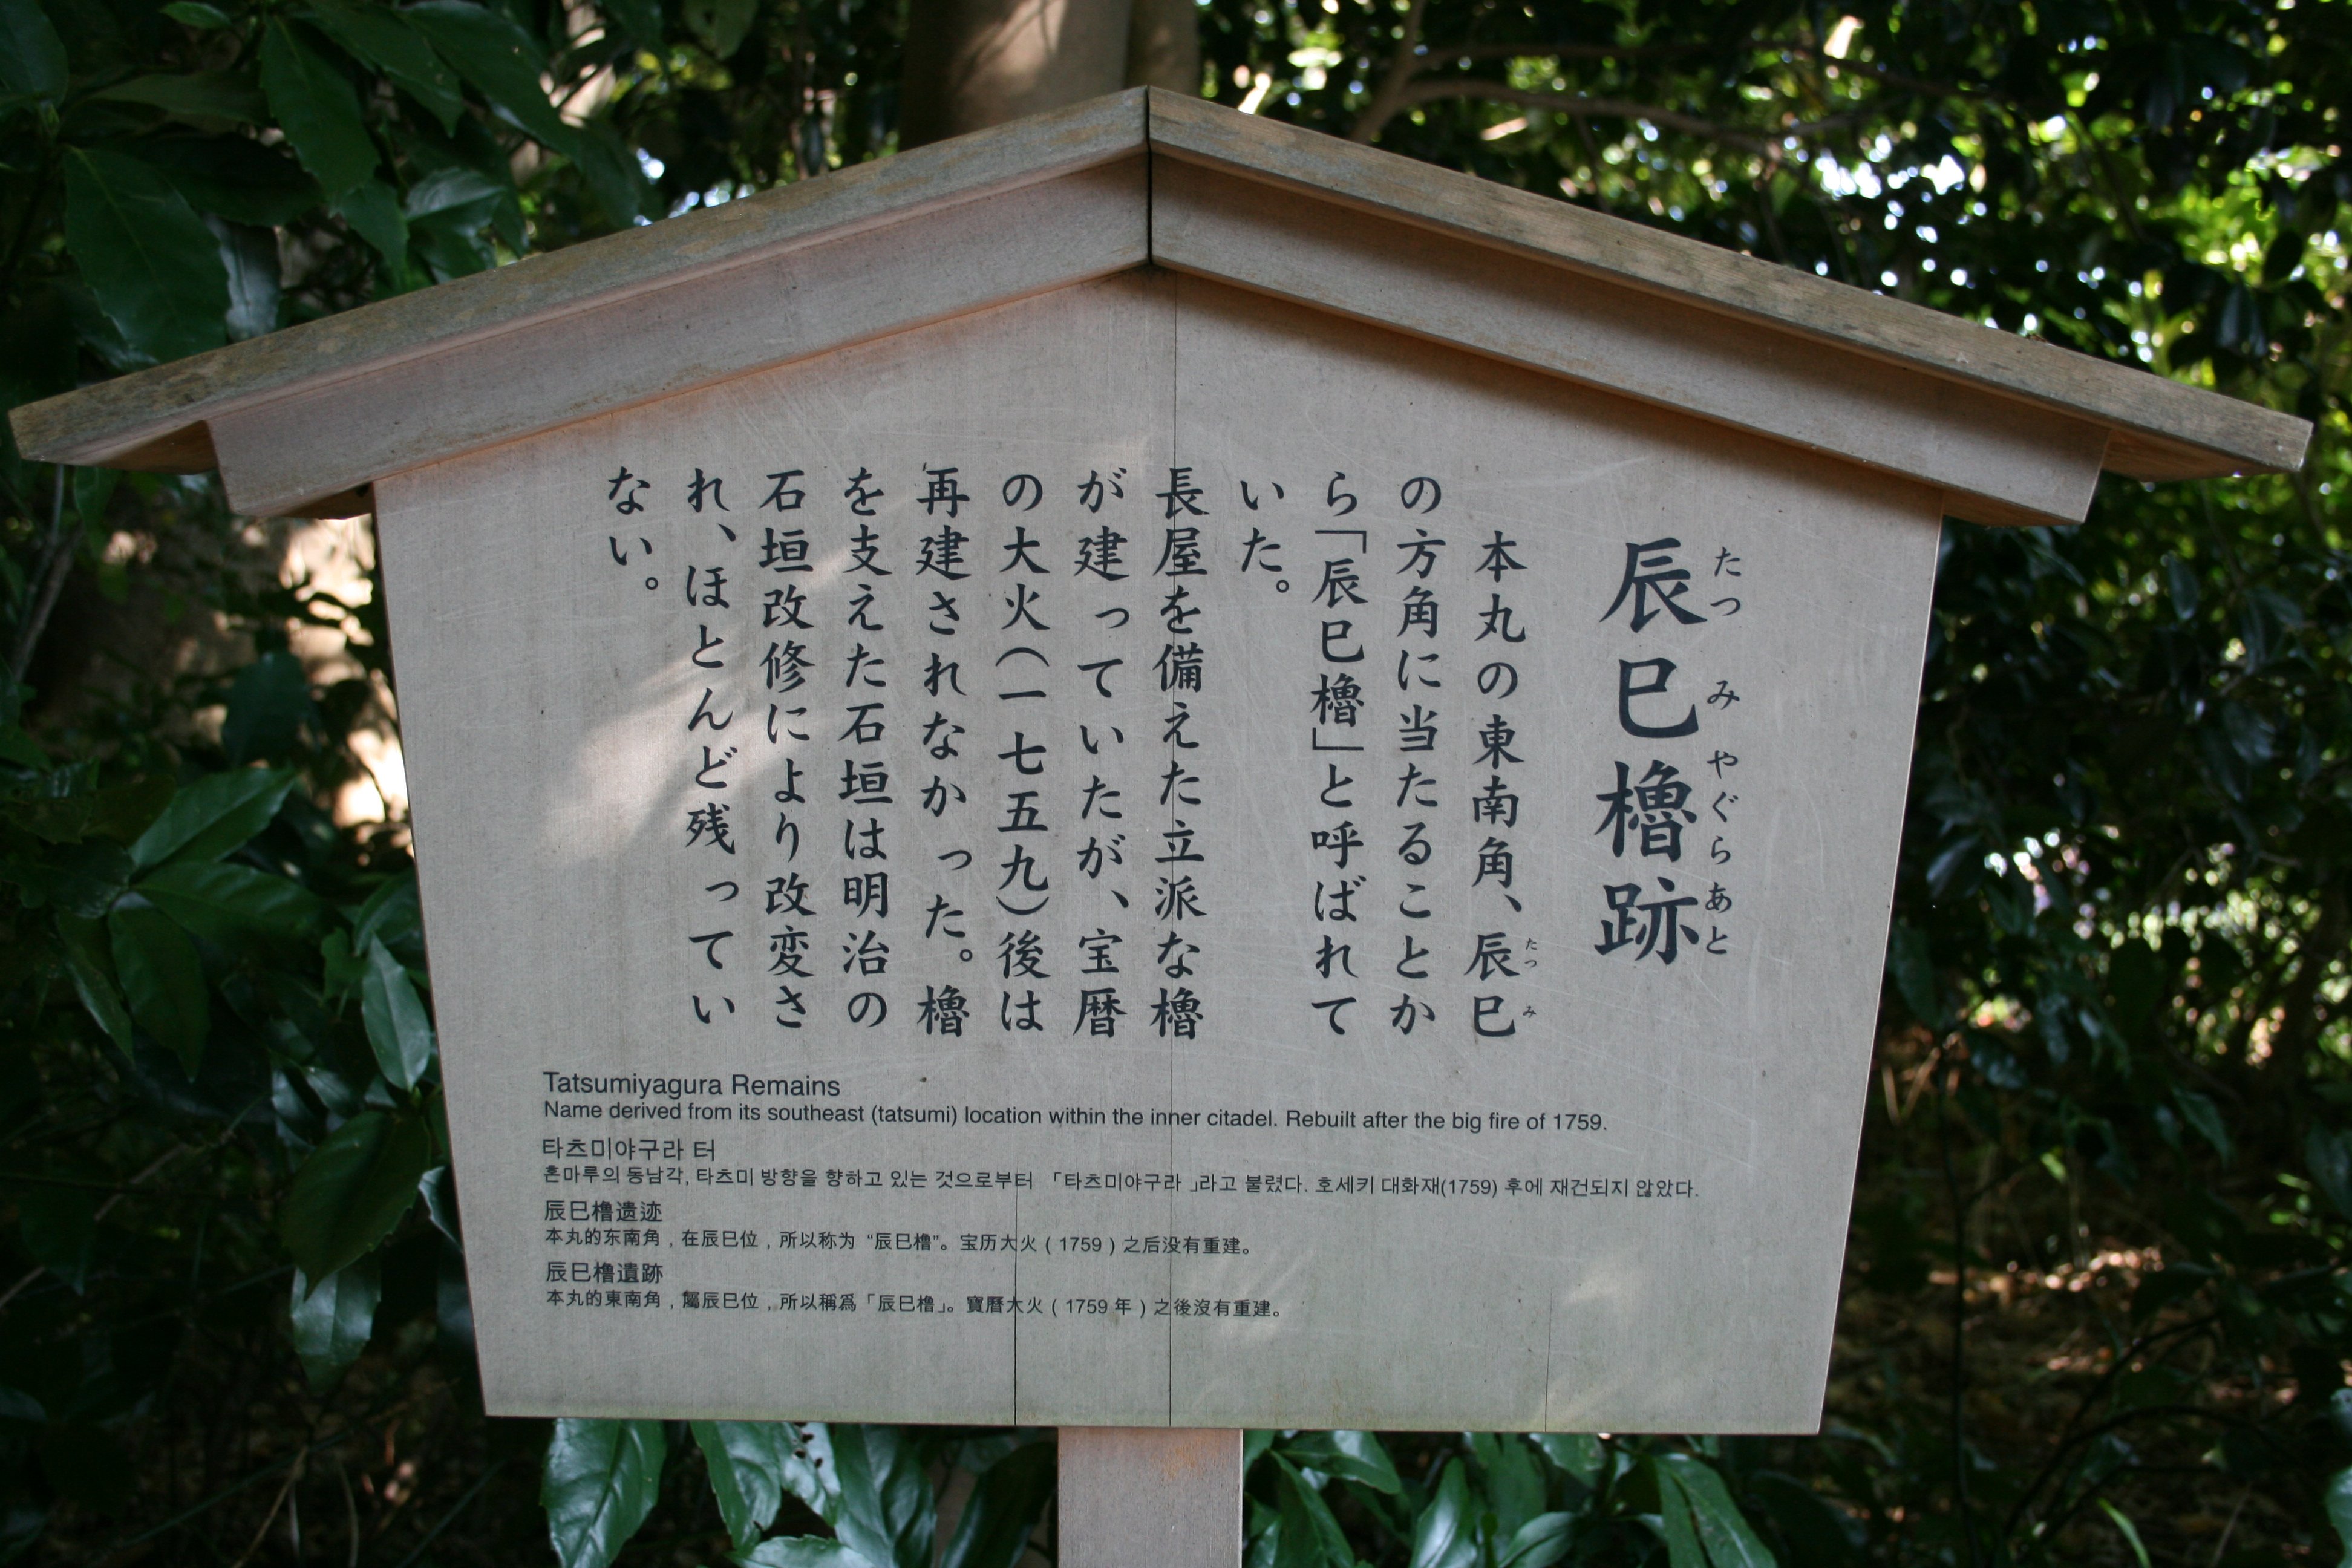 辰巳櫓跡
たつみやぐらあと
本丸の東南角、辰巳
たつみ
の方角に当たることか
ら「辰巳櫓」と呼ばれて
いた。
長屋を備えた立派な櫓
が建っていたが、宝暦
の大火(一七五九)後は
再建されなかった。櫓
を支えた石垣は明治の
石垣改修により改変さ
れ、ほとんど残ってい
ない。
Tatsumiyagura Remains
Name derived from its southeast (tatsumi) location within the inner citadel. Rebuilt after the big fire of 1759.
타츠미야구라 터
혼마루의 동남각, 타츠미 방향을 향하고 있는 것으로부터 「타츠미야구라 」라고 불렸다. 호세키 대화재(1759) 후에 재건되지 않았다.
辰巳橹遗迹
本丸的东南角，在辰巳位，所以称为“辰巳橹”。宝历大火（1759）之后没有重建。
辰巳櫓遺跡
本丸的東南角，屬辰巳位，所以稱爲「辰巳櫓」。寶曆大火（1759 年）之後沒有重建。